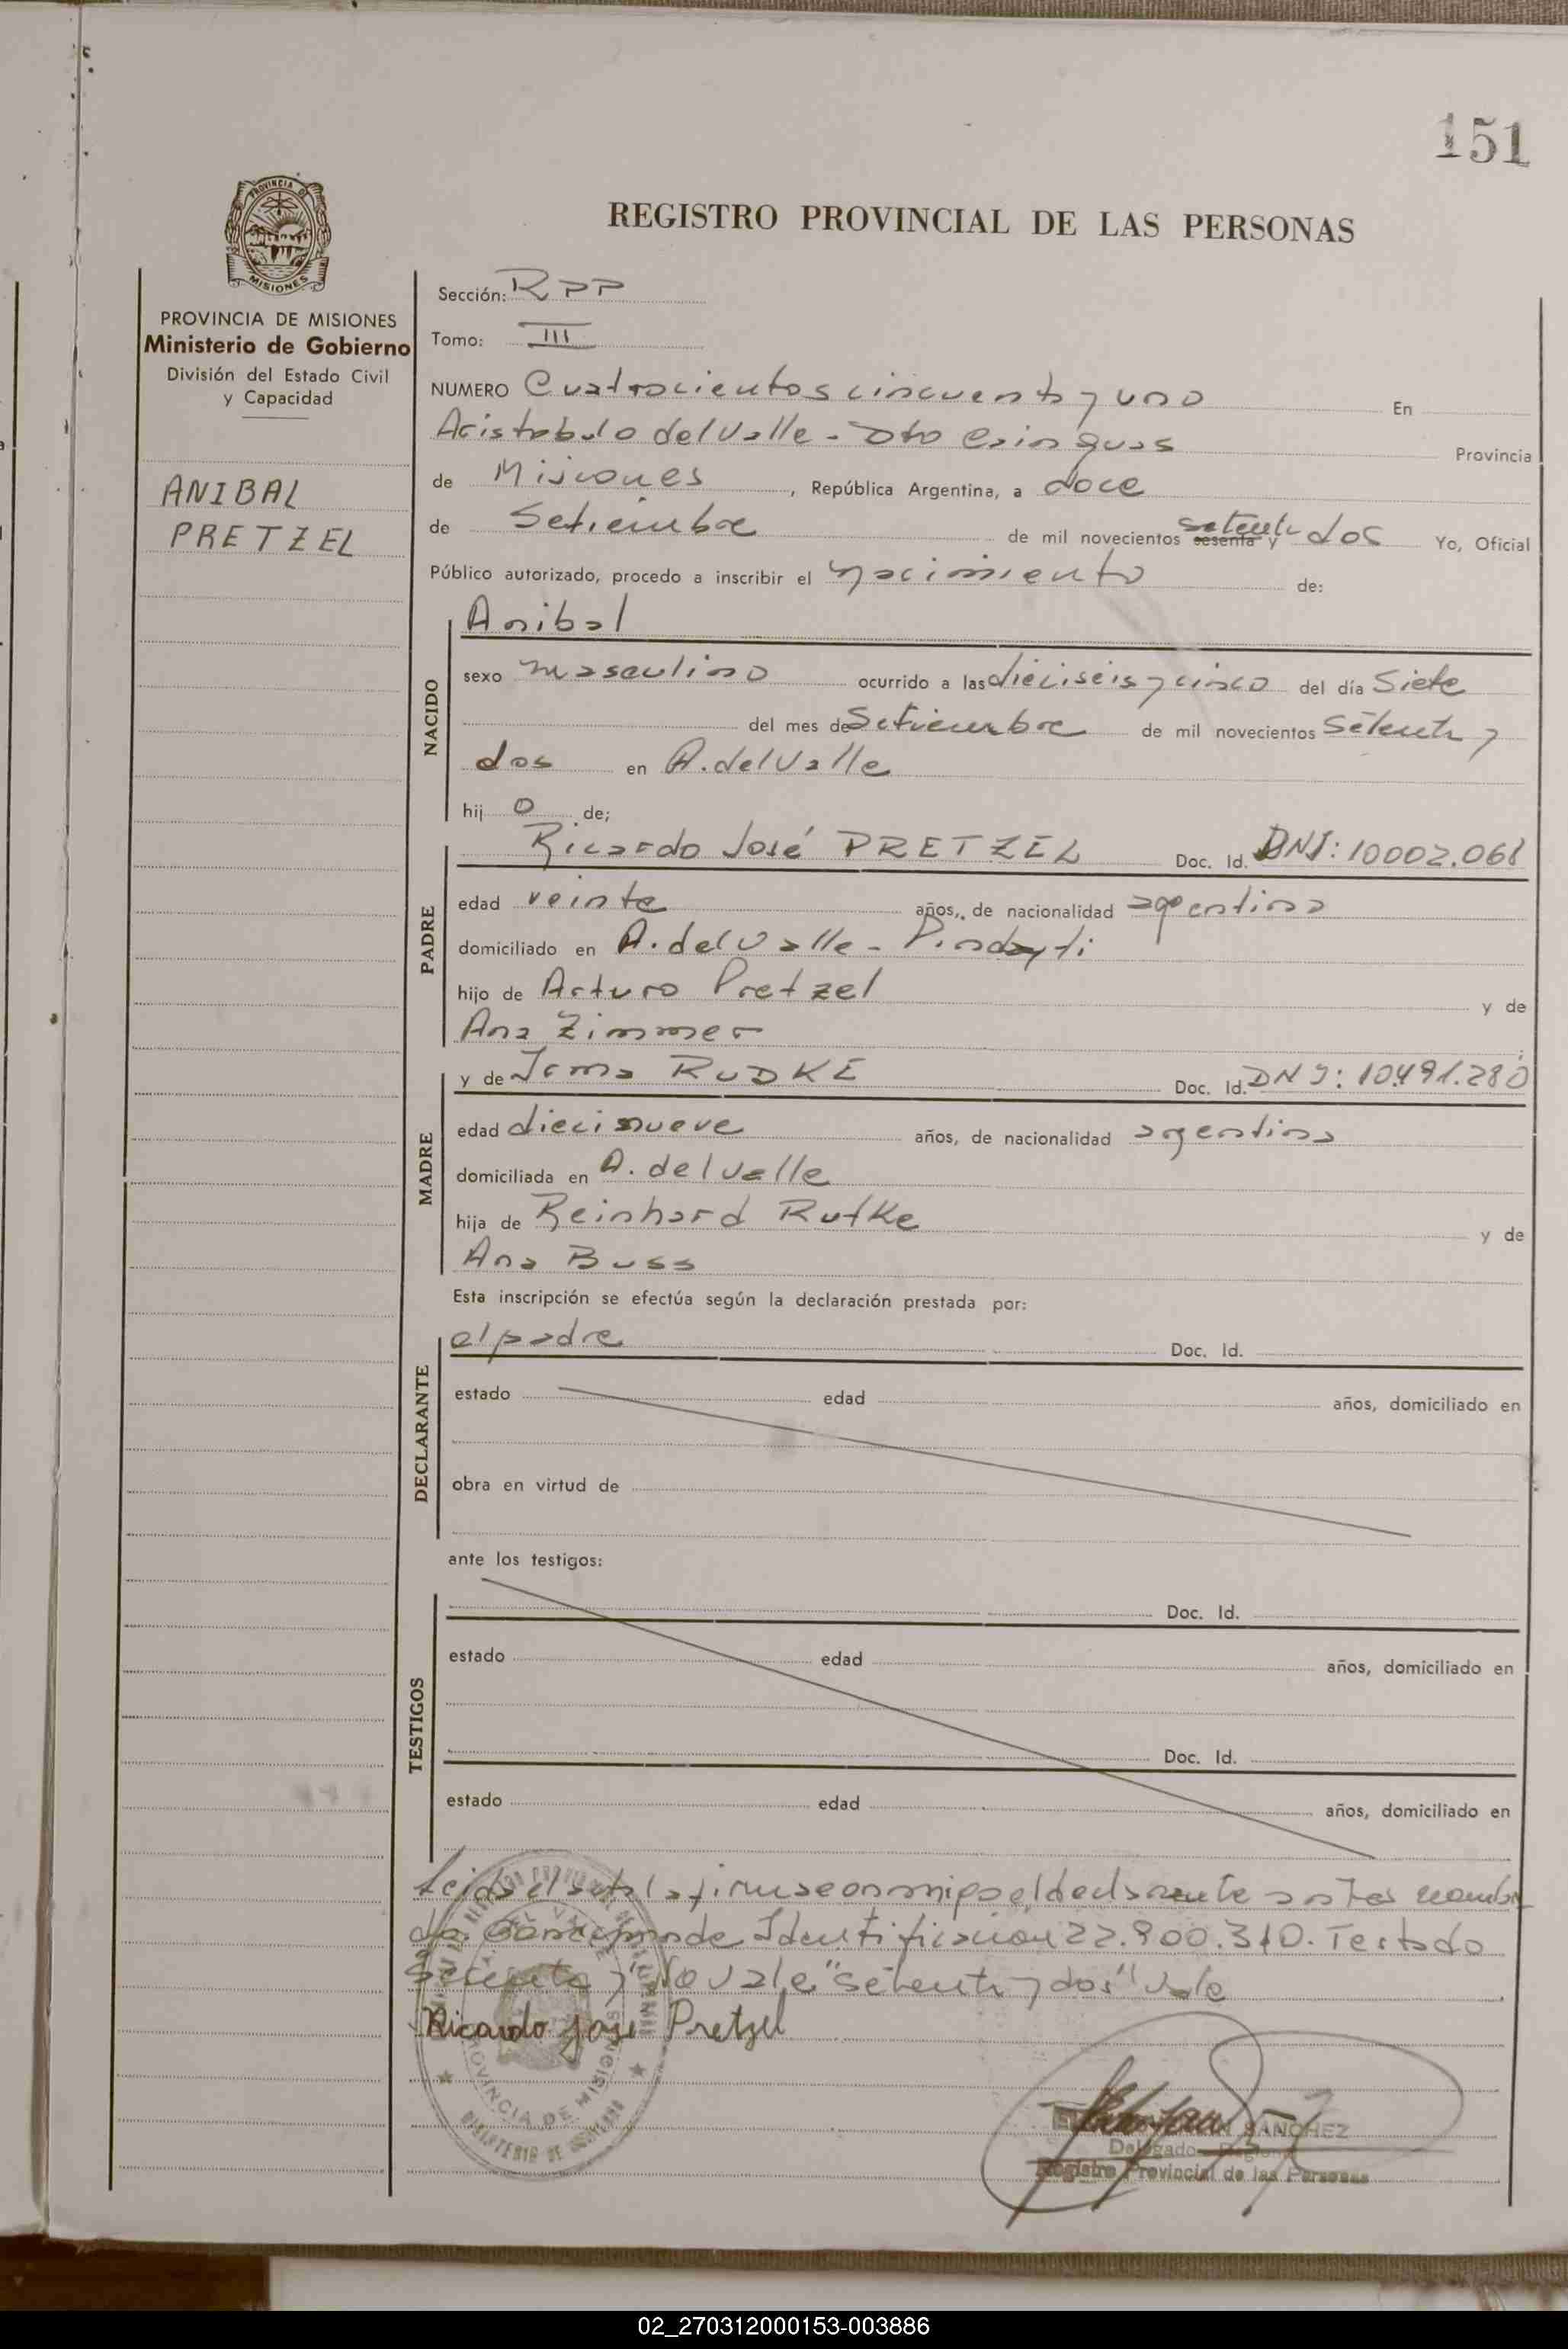 151
REGISTRO PROVINCIAL DE LAS PERSONAS
PROVINCIA DE MISIONES
Ministerio de Gobierno
División del Estado Civil
y Capacidad
ANIBAL
PRETZEL
Sección: RPP
Tomo: III
NUMERO Cuatrocientos cincuenta y uno En
Aristobulo del Valle - Dto Cainguas Provincia
de Misiones, República Argentina, a doce
de Setiembre de mil novecientos sesenta y setenta dos Yo, Oficial
Público autorizado, procedo a inscribir el nacimiento de:
Anibal
NACIDO
sexo masculino ocurrido a las dieciseis y cinco del día Siete
del mes de Setiembre de mil novecientos setenta y
dos en A. del Valle
hij o de;
PADRE
Ricardo José PRETZEL Doc. Id. DNI: 10002.068
edad veinte años, de nacionalidad argentina
domiciliado en A. del Valle - Pindayti
hijo de Arturo Pretzel y de
Ana Zimmer
MADRE
y de Irma RUDKE Doc. Id. DNI: 10491.280
edad diecinueve años, de nacionalidad argentina
domiciliada en A. del Valle
hija de Reinhard Rutke y de
Ana Buss
Esta inscripción se efectúa según la declaración prestada por:
DECLARANTE
el padre Doc. Id.
estado edad años, domiciliado en
obra en virtud de
ante los testigos:
TESTIGOS
Doc. Id.
estado edad años, domiciliado en
Doc. Id.
estado edad años, domiciliado en
Leida el acta la firma conmigo el declarante antes nombra
do. Identificacion 22.900.310. Testado
"Sesenta y" No vale "setenta y dos" Vale
Ricardo José Pretzel
SANCHEZ
Delegado
Registro Provincial de las Personas
02_270312000153-003886